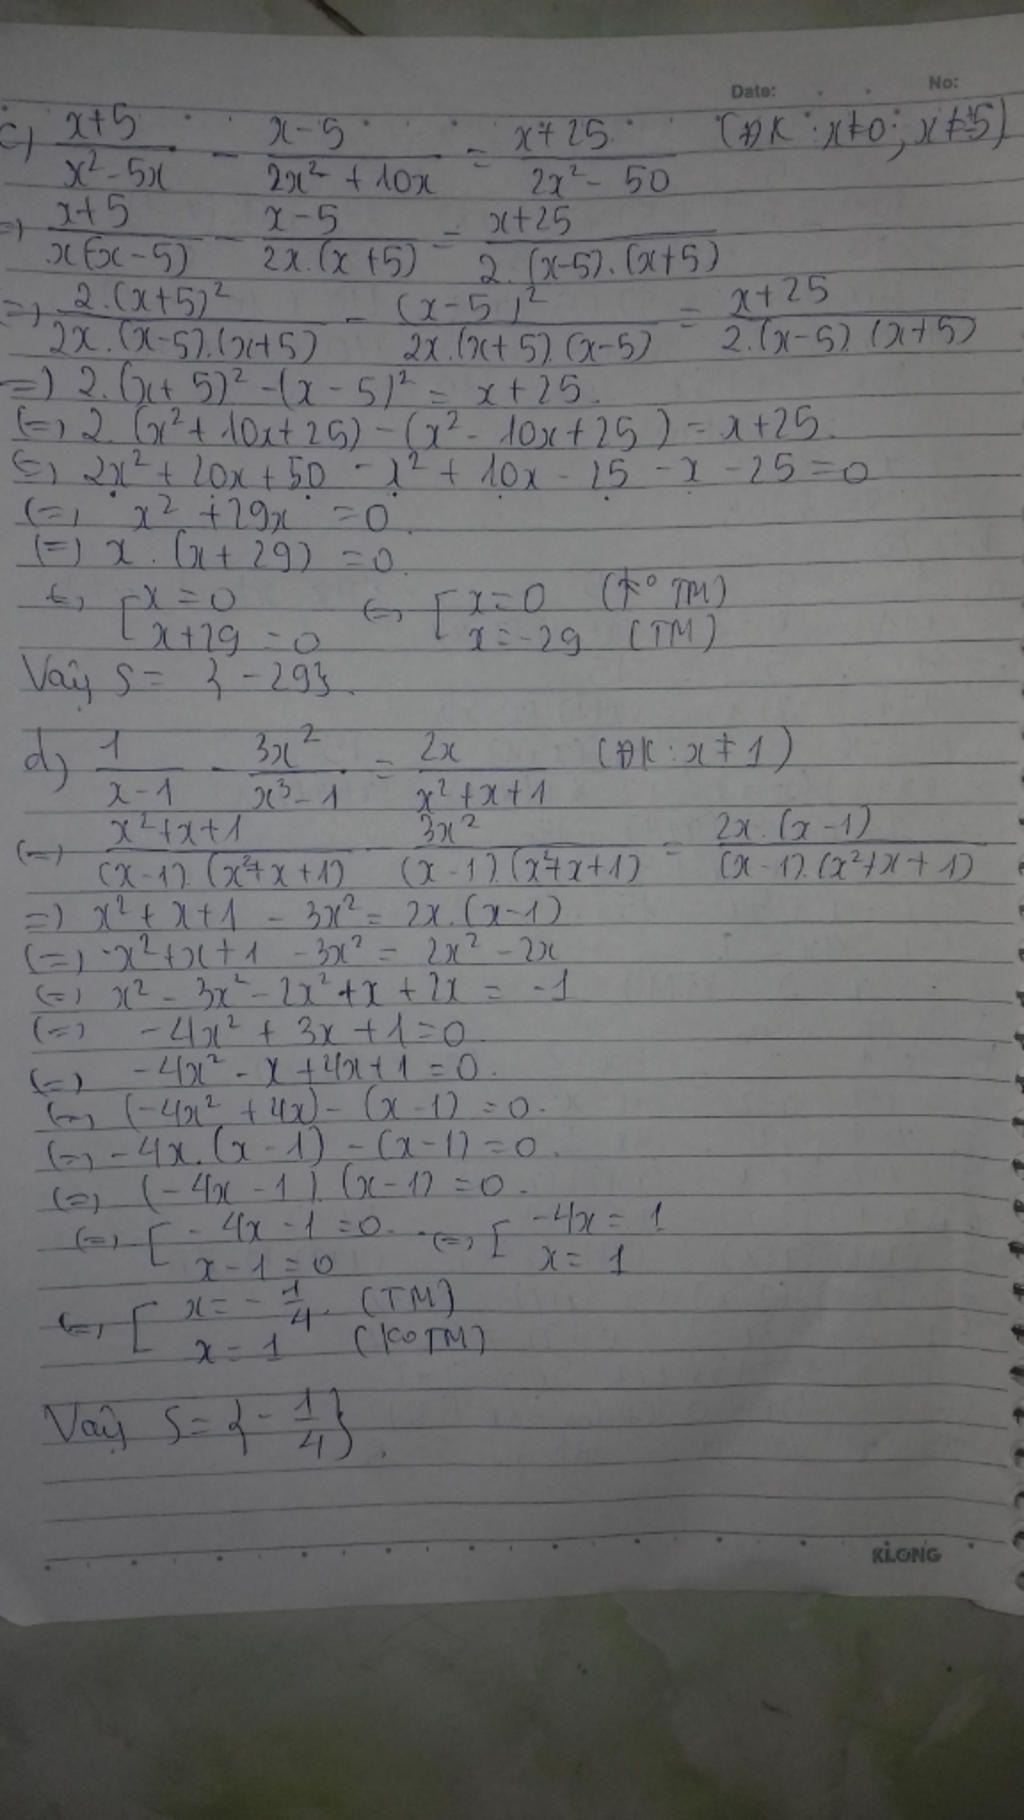 Date: No:
c) (x+5)/(x² - 5x) - (x-5)/(2x² + 10x) = (x+25)/(2x² - 50) (ĐK: x≠0; x≠±5)
=) (x+5)/(x(x-5)) - (x-5)/(2x.(x+5)) = (x+25)/(2.(x-5).(x+5))
(=) (2.(x+5)²)/(2x.(x-5).(x+5)) - ((x-5)²)/(2x.(x+5).(x-5)) = (x+25)/(2.(x-5).(x+5))
=) 2.(x+5)² - (x-5)² = x+25.
(=) 2.(x² + 10x+25) - (x² - 10x+25) = x+25.
(=) 2x² + 20x + 50 - x² + 10x - 25 - x - 25 = 0
(=) x² + 29x = 0.
(=) x.(x+29) = 0.
(=) [x = 0 (=) [x = 0 (Ko TM)
x+29 = 0 x = -29 (TM)
Vậy S = {-29}.
d) 1/(x-1) - 3x²/(x³-1) = 2x/(x²+x+1) (ĐK: x≠1)
(=) (x²+x+1)/((x-1).(x²+x+1)) - 3x²/((x-1).(x²+x+1)) = (2x.(x-1))/((x-1).(x²+x+1))
=) x² + x + 1 - 3x² = 2x.(x-1)
(=) x² + x + 1 - 3x² = 2x² - 2x
(=) x² - 3x² - 2x² + x + 2x = -1
(=) -4x² + 3x + 1 = 0
(=) -4x² - x + 4x + 1 = 0.
(=) (-4x² + 4x) - (x-1) = 0.
(=) -4x.(x-1) - (x-1) = 0.
(=) (-4x-1).(x-1) = 0.
(=) [-4x-1 = 0 (=) [-4x = 1
x-1 = 0 x = 1
(=) [x = -1/4 (TM)
x = 1 (Ko TM)
Vậy S = {-1/4}.
KLONG